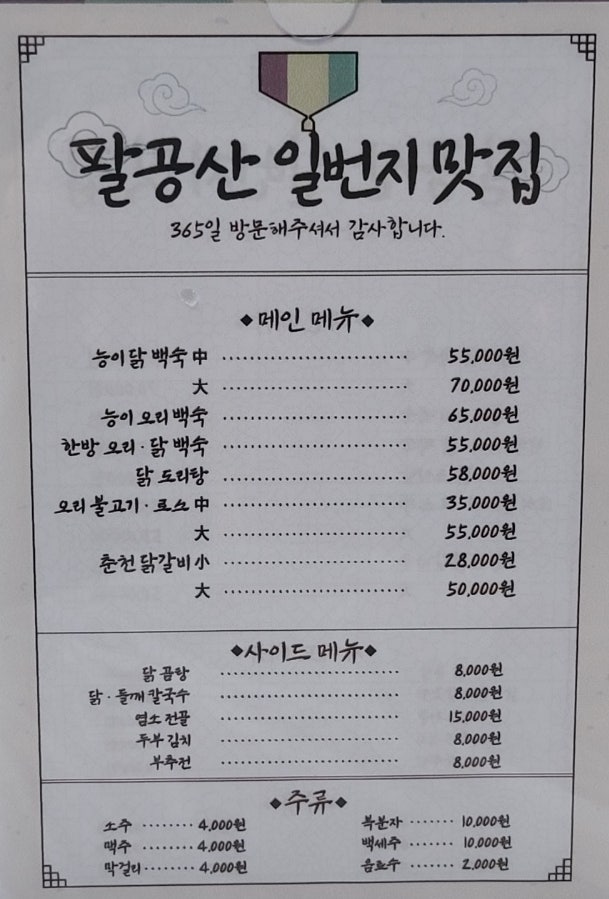 팔공산 일번지 맛집
365일 방문해주셔서 감사합니다.
◆메인 메뉴◆
능이 닭 백숙 中 ········ 55,000원
大 ········ 70,000원
능이 오리 백숙 ········ 65,000원
한방 오리·닭 백숙 ········ 55,000원
닭 도리탕 ········ 58,000원
오리 불고기·로스 中 ········ 35,000원
大 ········ 55,000원
춘천 닭갈비 小 ········ 28,000원
大 ········ 50,000원
◆사이드 메뉴◆
닭 곰탕 ········ 8,000원
닭·들깨 칼국수 ········ 8,000원
염소 전골 ········ 15,000원
두부 김치 ········ 8,000원
부추전 ········ 8,000원
◆주류◆
소주 ········ 4,000원 복분자 ······· 10,000원
맥주 ········ 4,000원 백세주 ······· 10,000원
막걸리 ········ 4,000원 음료수 ······· 2,000원